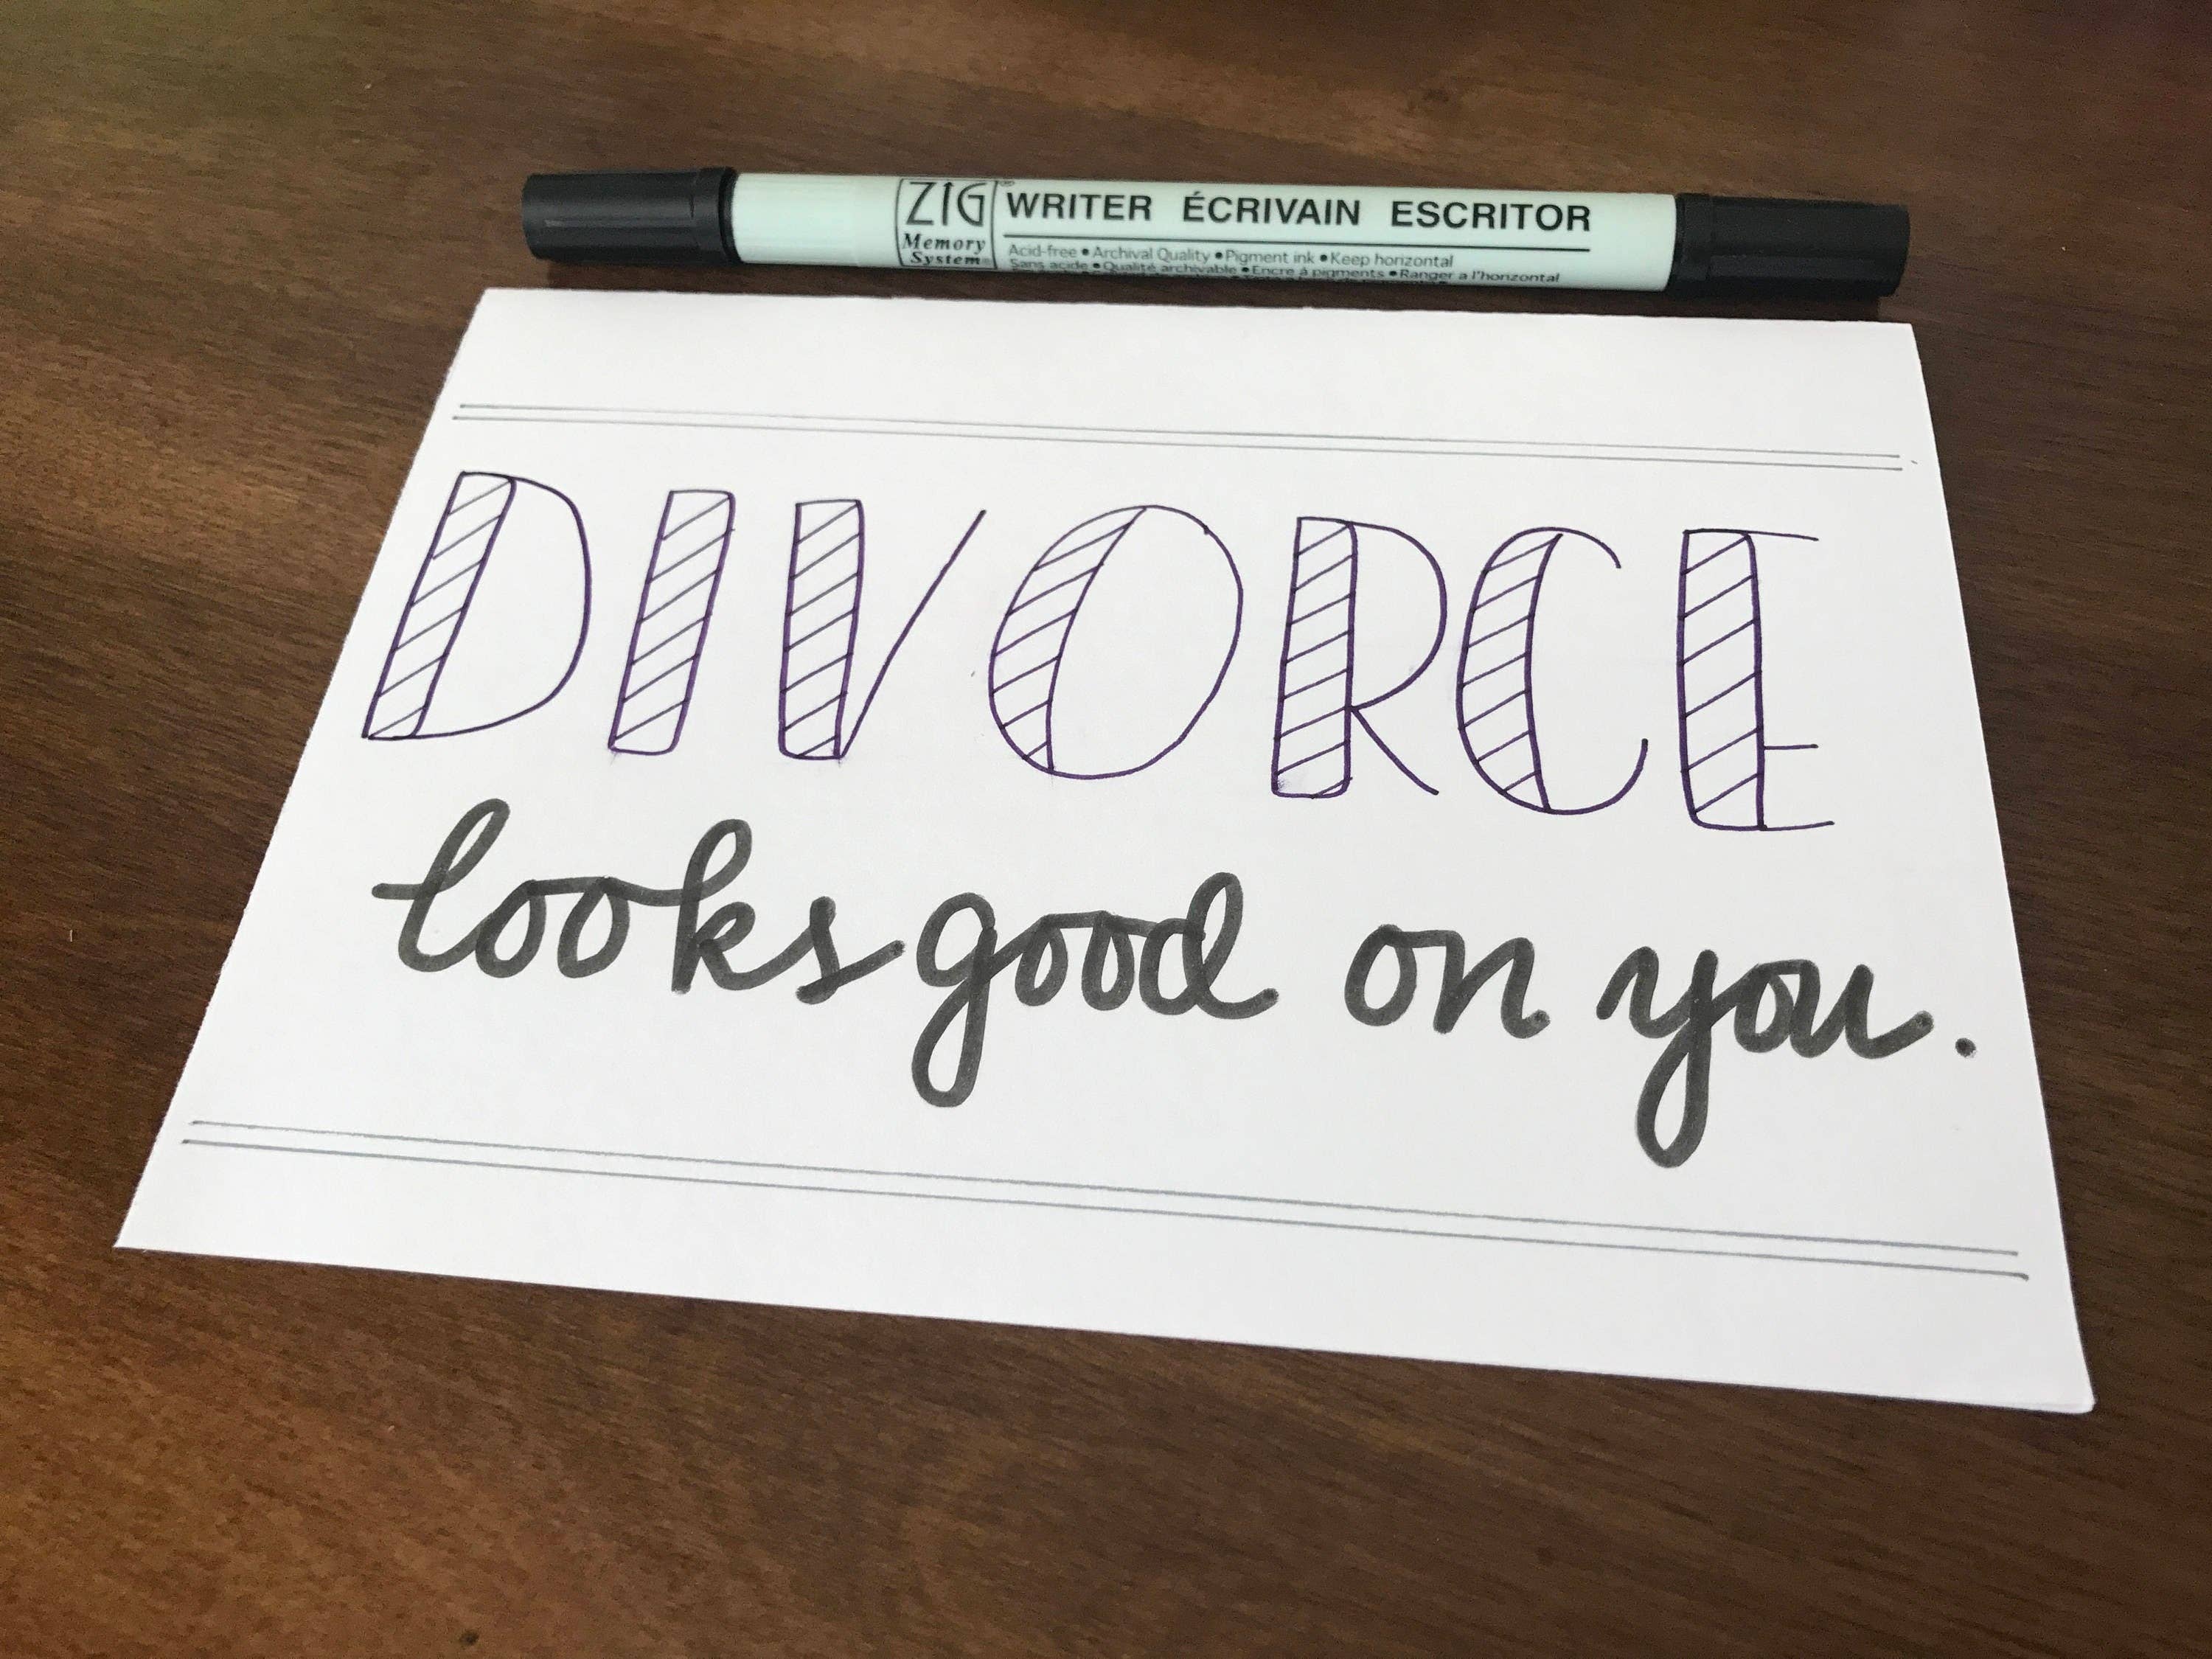 ZIG® WRITER ÉCRIVAIN ESCRITOR
Memory System®
Acid-free • Archival Quality • Pigment ink • Keep horizontal
Sans acide • Qualité archivable • Encre à pigments • Ranger a l'horizontal
DIVORCE
looks good on you.